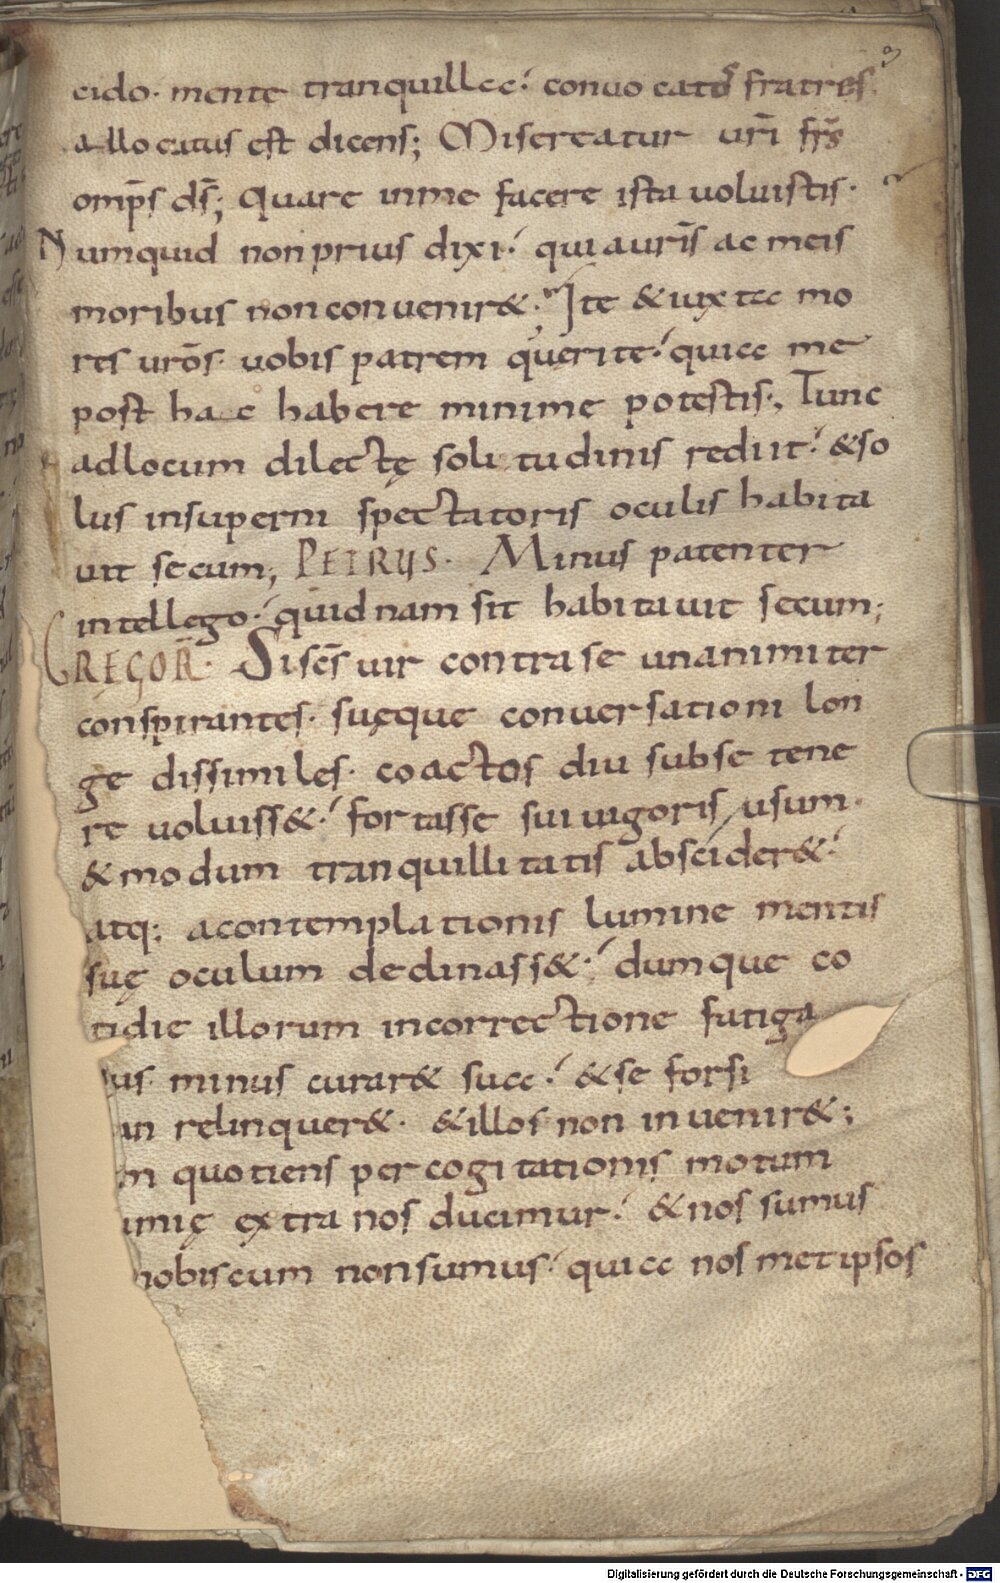 3
cido· mente tranquilla· conuocatos fratres
allocutus est dicens; Misereatur uri frs
omps ds; Quare inme facere ista uoluistis·
Numquid non prius dixi· qui auris ac meis
moribus non conuenir&· Ite & iuxta mo
res uros· uobis patrem querite· quia me
post haec habere minime potestis·, Tunc
adlocum dilectę solitudinis rediit· & so
lus insuperni spectatoris oculis habita
uit secum; PETRUS· Minus patenter
intellego· quid nam sit habitauit secum;
GREGOR· Si scs uir contra se unanimiter
conspirantes· suęque conuersationi lon
ge dissimiles· coactos diu subse tene
re uoluiss&· fortasse sui uigoris usum·
& modum tranquillitatis abscider&·
atq; acontemplationis lumine mentis
suę oculum declinass&· dumque co
tidie illorum incorrectione fatiga
tus minus curar& sua· & se forsi
an relinquer&· & illos non inuenir&;
m quotiens per cogitationis motum
imię extra nos ducimur· & nos sumus
nobiscum non sumus· quia nosmetipsos
Digitalisierung gefördert durch die Deutsche Forschungsgemeinschaft - DFG